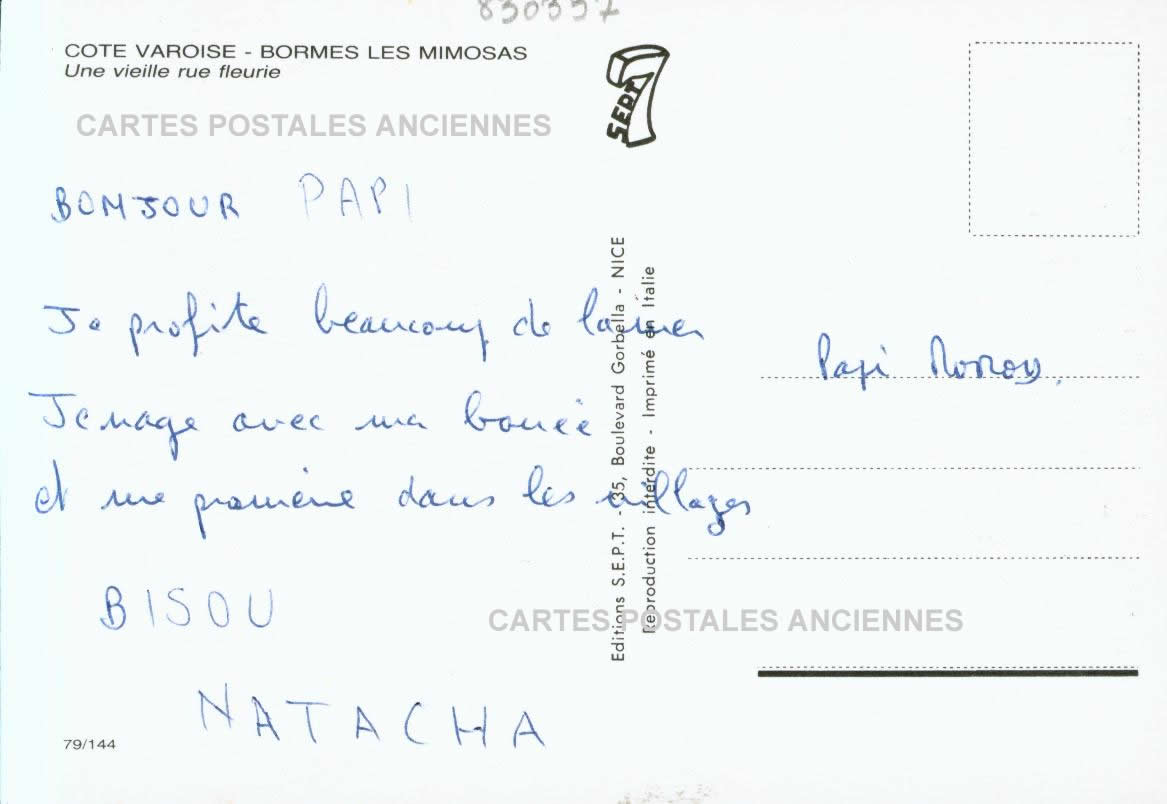 830357
COTE VAROISE - BORMES LES MIMOSAS
Une vieille rue fleurie
SEPT
7
CARTES POSTALES ANCIENNES
BONJOUR PAPI
Je profite beaucoup de la mer
Je nage avec ma bouée
et me promène dans les villages
BISOU
NATACHA
79/144
Editions S.E.P.T. - 35, Boulevard Gorbella - NICE
Reproduction interdite - Imprimé en Italie
Papi
CARTES POSTALES ANCIENNES